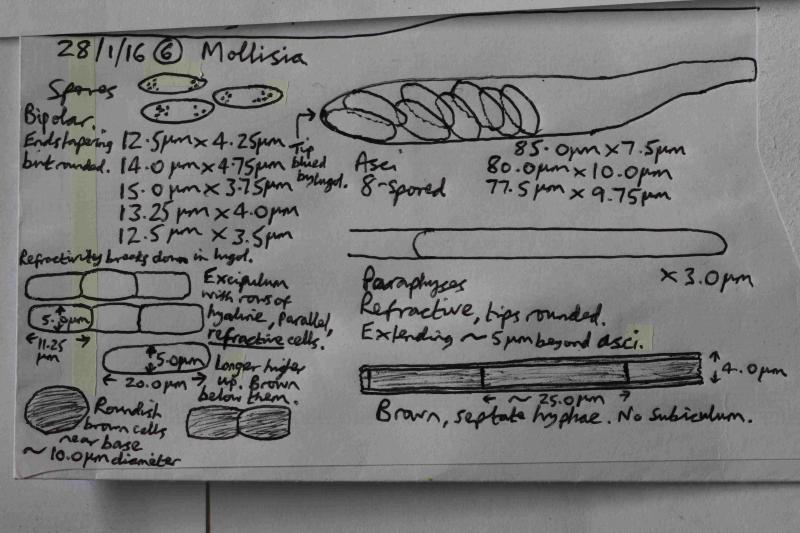 28/1/16 6 Mollisia
Spores
Bipolar.
Ends tapering
but rounded.
12.5µm x 4.25µm
14.0µm x 4.75µm
15.0µm x 3.75µm
13.25µm x 4.0µm
12.5µm x 3.5µm
Refractivity breaks down in lugol.
Tip
blued
by lugol.
Asci
8-spored
85.0µm x 7.5µm
80.0µm x 10.0µm
77.5µm x 9.75µm
Paraphyses
x 3.0µm
Refractive, tips rounded.
Extending ~ 5µm beyond asci.
Excipulum
with rows of
hyaline, parallel,
refractive cells.
5.0µm
11.25
µm
5.0µm
20.0µm
Longer higher
up. Brown
below them.
Roundish
brown cells
near base
~ 10.0µm diameter
4.0µm
~ 25.0µm
Brown, septate hyphae. No subiculum.